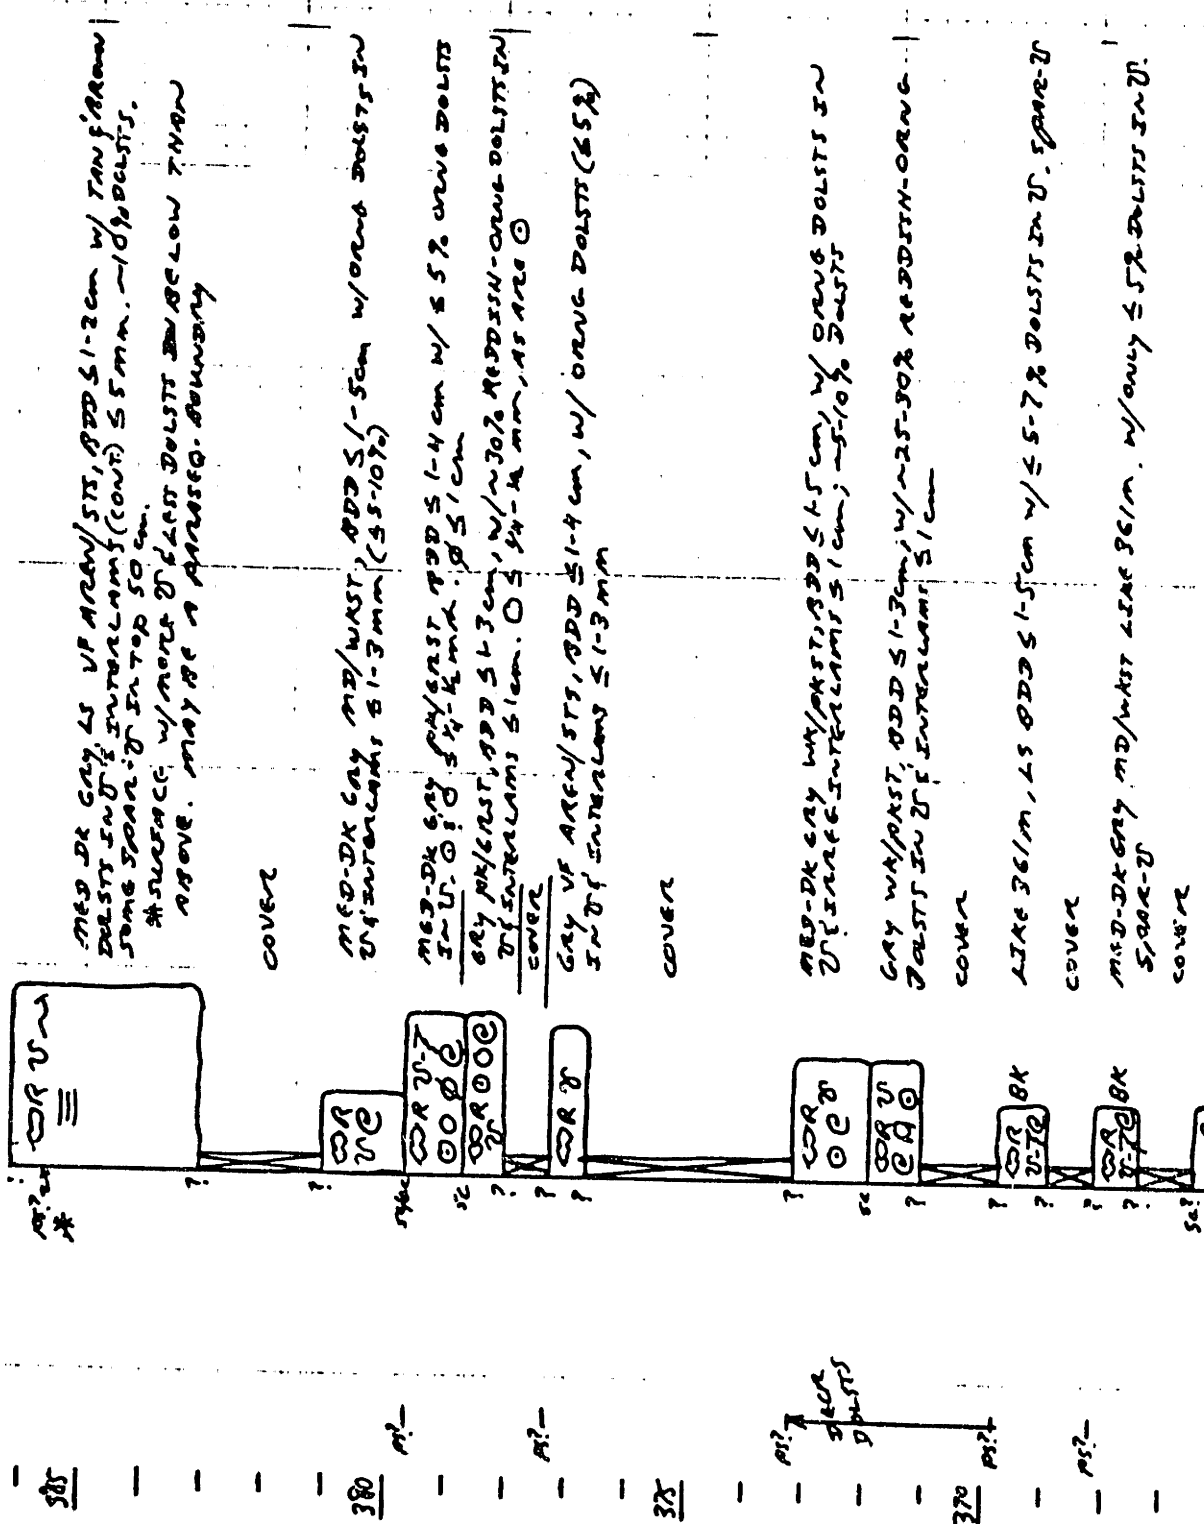 MED DK GRY LS VF AREN/STS, BDD ≤ 1-2cm W/ TAN & BROWN
DOLSTS IN ʊ & INTERLAMS (CONT.) ≤ 5mm. ~10% DOLSTS.
SOME SPAR-ʊ IN TOP 50 cm.
* SURFACE W/ MORE ʊ & LESS DOLSTS BELOW THAN
ABOVE. MAY BE A PARASEQ. BOUNDARY
COVER
MED-DK GRY MD/WKST, BDD ≤ 1-5cm W/ORNG DOLSTS IN
ʊ & INTERLAMS ≤ 1-3mm (≤ 5-10%)
MED-DK GRY PK/GRST BDD ≤ 1-4 cm W/ ≤ 5% ORNG DOLSTS
IN ʊ. ⊙ & O ≤ ¼-½ mm. Ø ≤ 1cm
GRY PK/GRST, BDD ≤ 1-3cm, W/ ~30% REDDISH-ORNG DOLSTS IN
ʊ & INTERLAMS ≤ 1cm. O ≤ ¼-½ mm, AS ARE ⊙
COVER
GRY VF AREN/STS, BDD ≤ 1-4 cm, W/ ORNG DOLSTS (≤ 5%)
IN ʊ & INTERLAMS ≤ 1-3 mm
COVER
MED-DK GRY WK/PKST, BDD ≤ 1-5 cm, W/ ORNG DOLSTS IN
ʊ & IRREG INTERLAMS ≤ 1cm; ~5-10% DOLSTS
GRY WK/PKST, BDD ≤ 1-3cm, W/ ~25-30% REDDISH-ORNG
DOLSTS IN ʊ & INTERLAMS ≤ 1cm
COVER
LIKE 361m, LS BDD ≤ 1-5cm W/ ≤ 5-7% DOLSTS IN ʊ. SPAR-ʊ
COVER
MED-DK GRY MD/WKST LIKE 361m. W/ONLY ≤ 5% DOLSTS IN ʊ.
SPAR-ʊ
COVER
R ʊ ~
R
ʊ
R ʊ-T
⊙ O Ø
R ⊙ O
ʊ
R ʊ
R
⊙ ʊ
R ʊ
⊙
R BK
ʊ-T
R BK
ʊ-T
PS?
*
?
?
SC
?
?
?
?
SC
?
?
?
?
SC?
PS?
PS?
PS?
DECR
DOLSTS
PS?
PS?
385
380
375
370